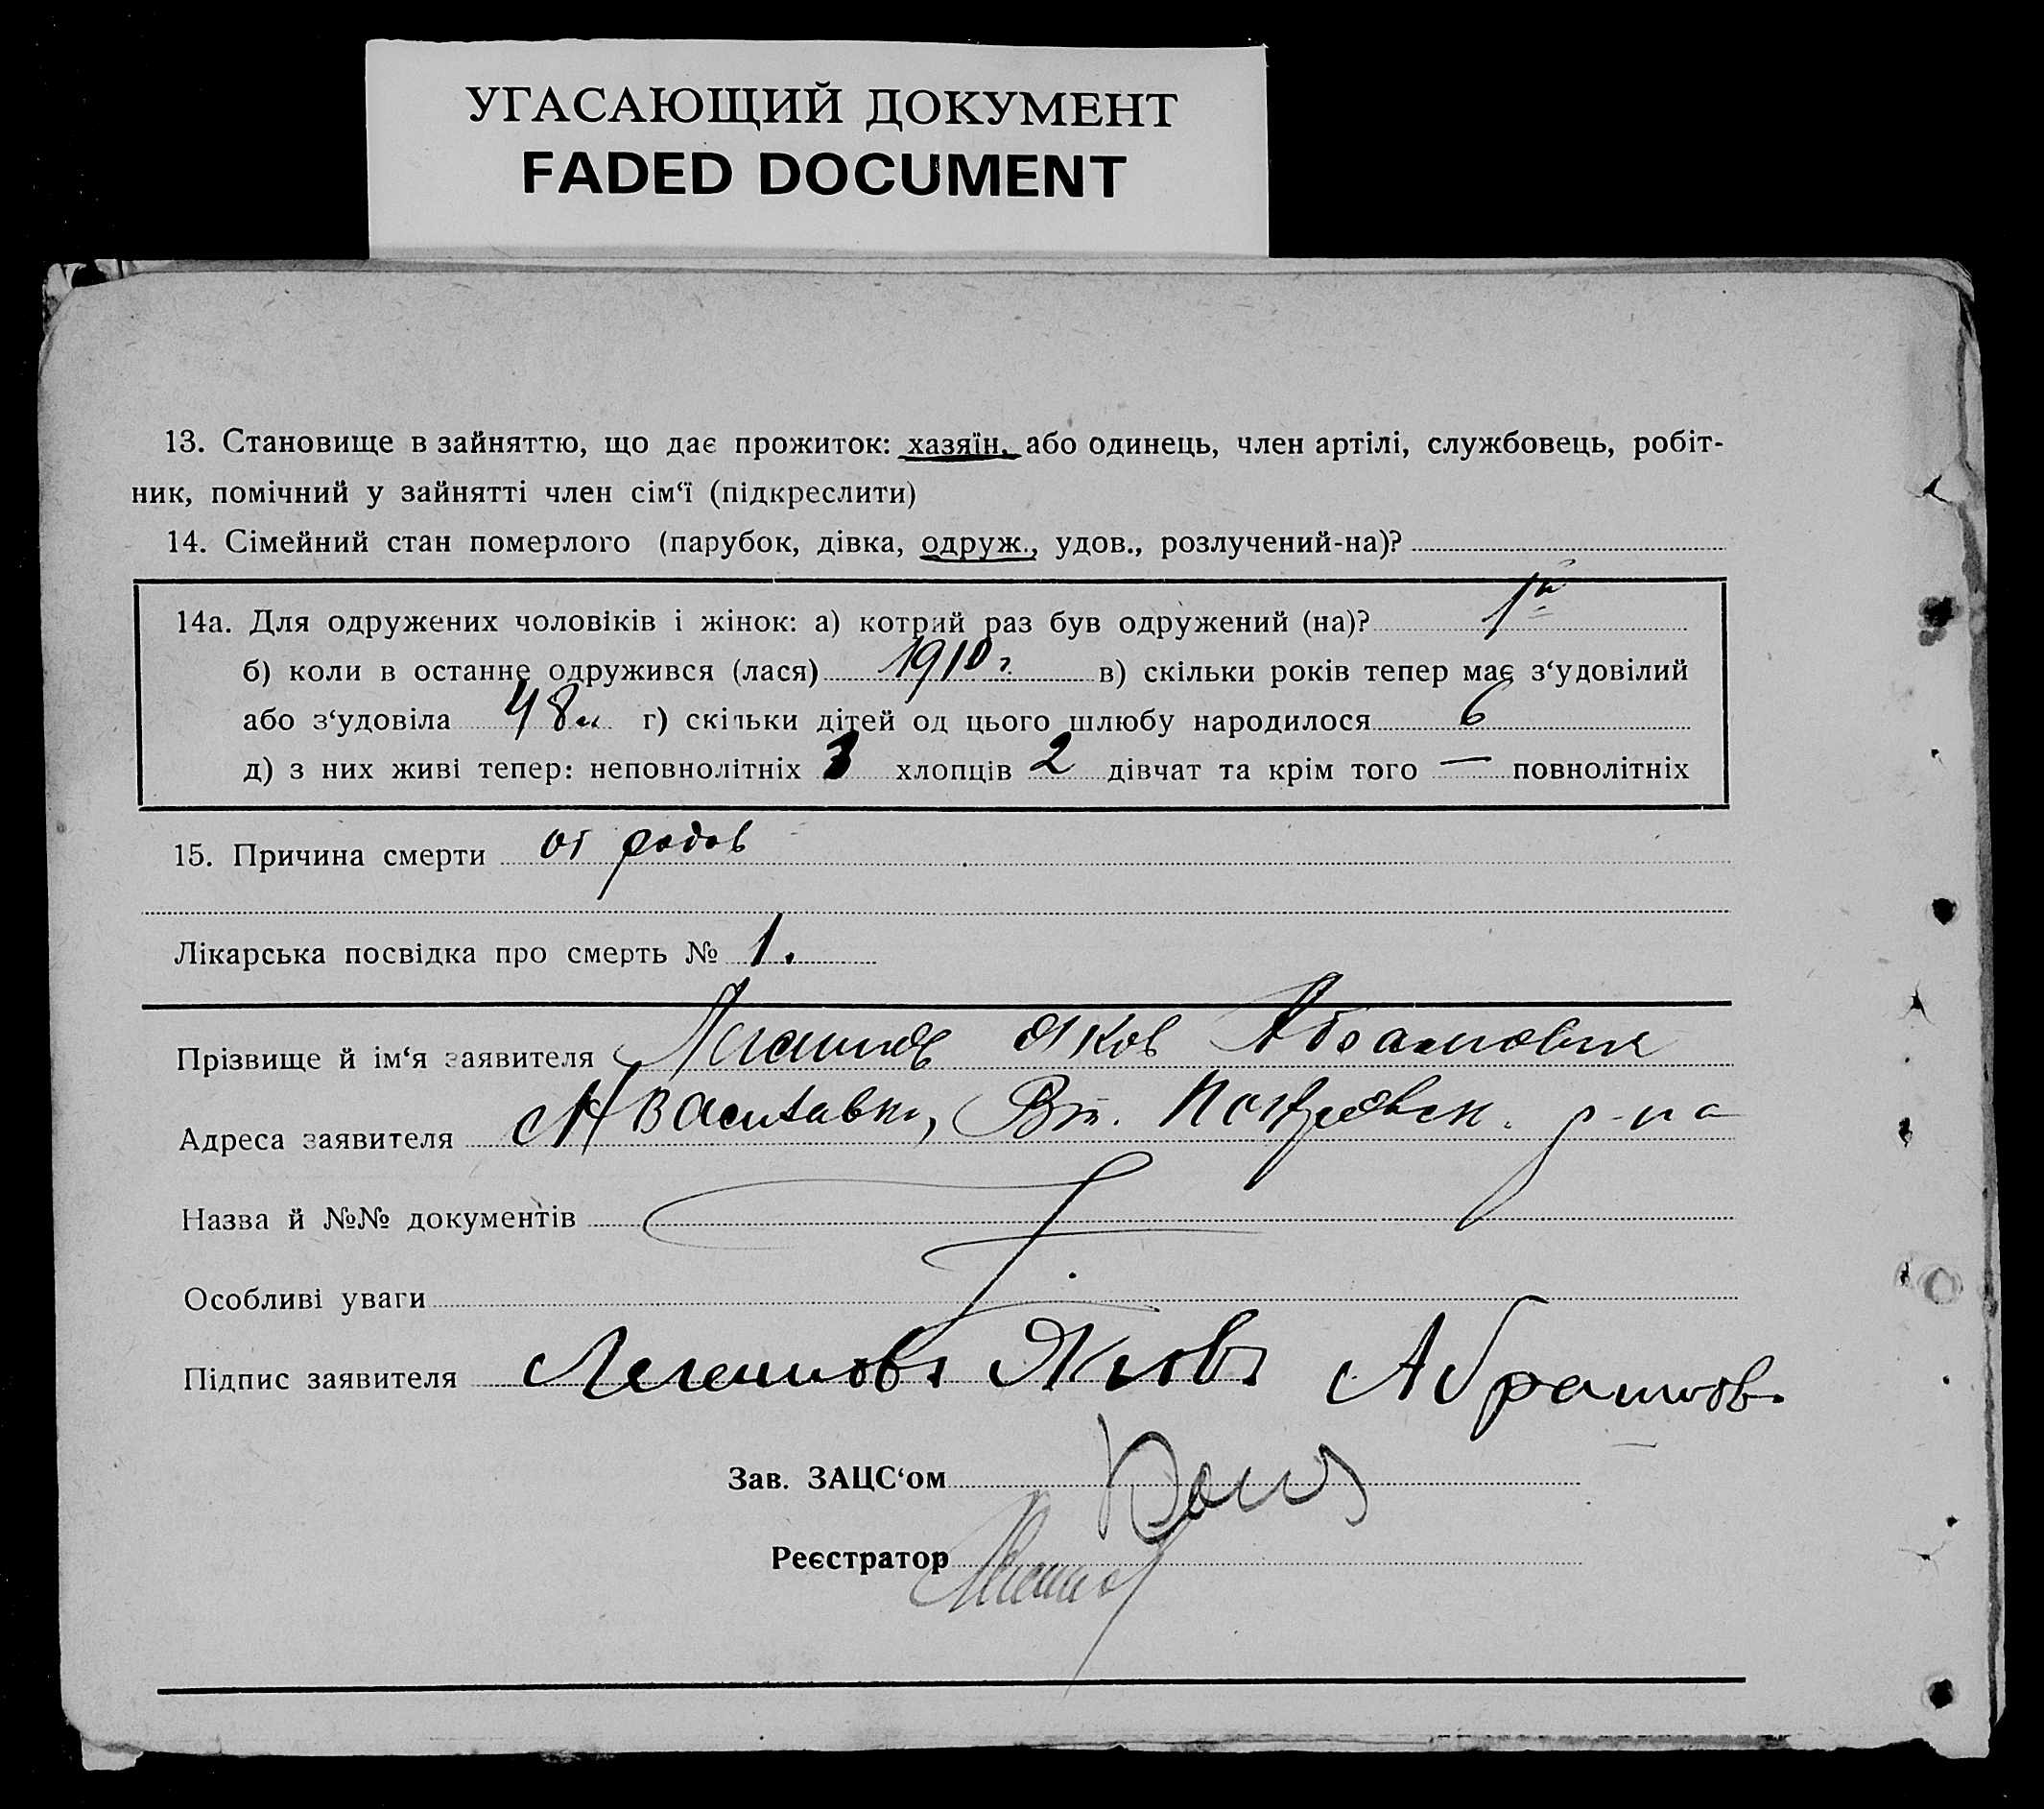 УГАСАЮЩИЙ ДОКУМЕНТ
FADED DOCUMENT
13. Становище в зайняттю, що дає прожиток: хазяїн, або одинець, член артілі, службовець, робіт-
ник, помічний у зайнятті член сім‘ї (підкреслити)
14. Сімейний стан померлого (парубок, дівка, одруж., удов., розлучений-на)?
14а. Для одружених чоловіків і жінок: а) котрий раз був одружений (на)? 1й
б) коли в останнє одружився (лася) 1910 г. в) скільки років тепер має з‘удовілий
або з‘удовіла 48 г) скільки дітей од цього шлюбу народилося 6
д) з них живі тепер: неповнолітніх 3 хлопців 2 дівчат та крім того — повнолітніх
15. Причина смерти от родов
Лікарська посвідка про смерть № 1.
Прізвище й ім‘я заявителя Яков Абрамович
Адреса заявителя р-на
Назва й №№ документів
Особливі уваги
Підпис заявителя Яковъ
Зав. ЗАЦС‘ом
Реєстратор